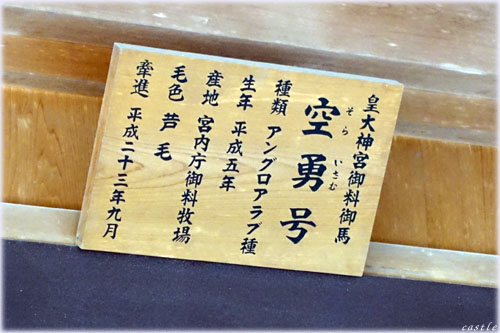 皇大神宮御料御馬
空勇号
そら いさむ
種類 アングロアラブ種
生年 平成五年
産地 宮内庁御料牧場
毛色 芦毛
牽進 平成二十三年九月
castle